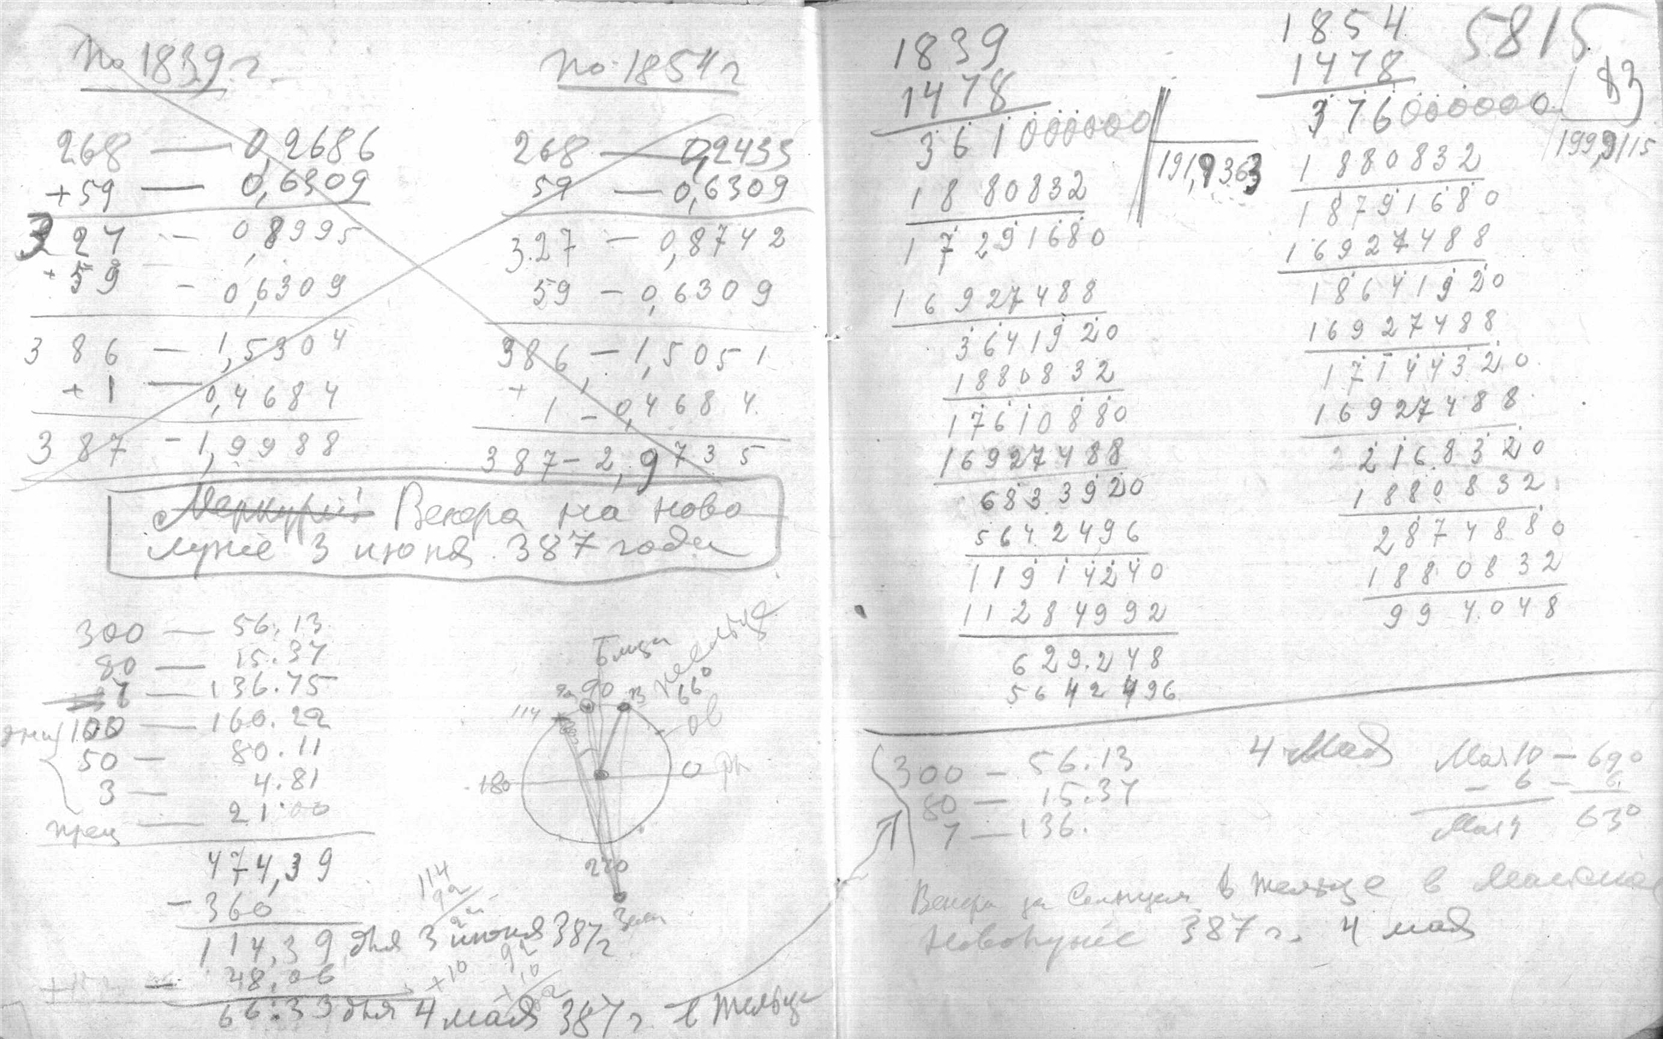 по 1839 г.
268 — 0,2686
+59 — 0,6309
327 — 0,8995
+59 — 0,6309
386 — 1,5304
+1 — 0,4684
387 — 1,9988
по 1854 г
268 — 0,2433
59 — 0,6309
327 — 0,8742
59 — 0,6309
386 — 1,5051
+1 — 0,4684
387 — 2,9735
Меркурий Венера на ново
луние 3 июня 387 года
300 — 56.13
80 — 15.37
7 — 136.75
дни 100 — 160.22
50 — 80.11
3 — 4.81
прец — 21.00
474,39
-360
114,39 дня 3 июня 387 г.
— 48,06
66.33 дня 4 мая 387 г. в Тельце
Близн
Тельца
90
114
180
0
270
Земля
114
92
+10
1839
1478
361000000
191,9363
1880832
17291680
16927488
3641920
1880832
17610880
16927488
6833920
5642496
11914240
11284992
629248
5642496
1854
1478
376000000
5815
83
199,9115
1880832
18791680
16927488
18641920
16927488
17144320
16927488
2168320
1880832
2874880
1880832
994048
300 — 56.13
80 — 15.37
7 — 136.
4 мая
Мая 10 — 690
— 6 — 6
Мая 4 630
Венера за Солнцем в Тельце в
Новолуние 387 г. 4 мая